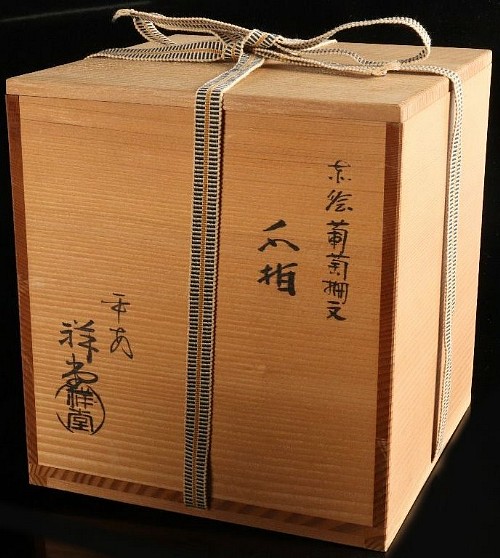 赤絵葡萄棚文
水指
平安
祥堂
祥堂